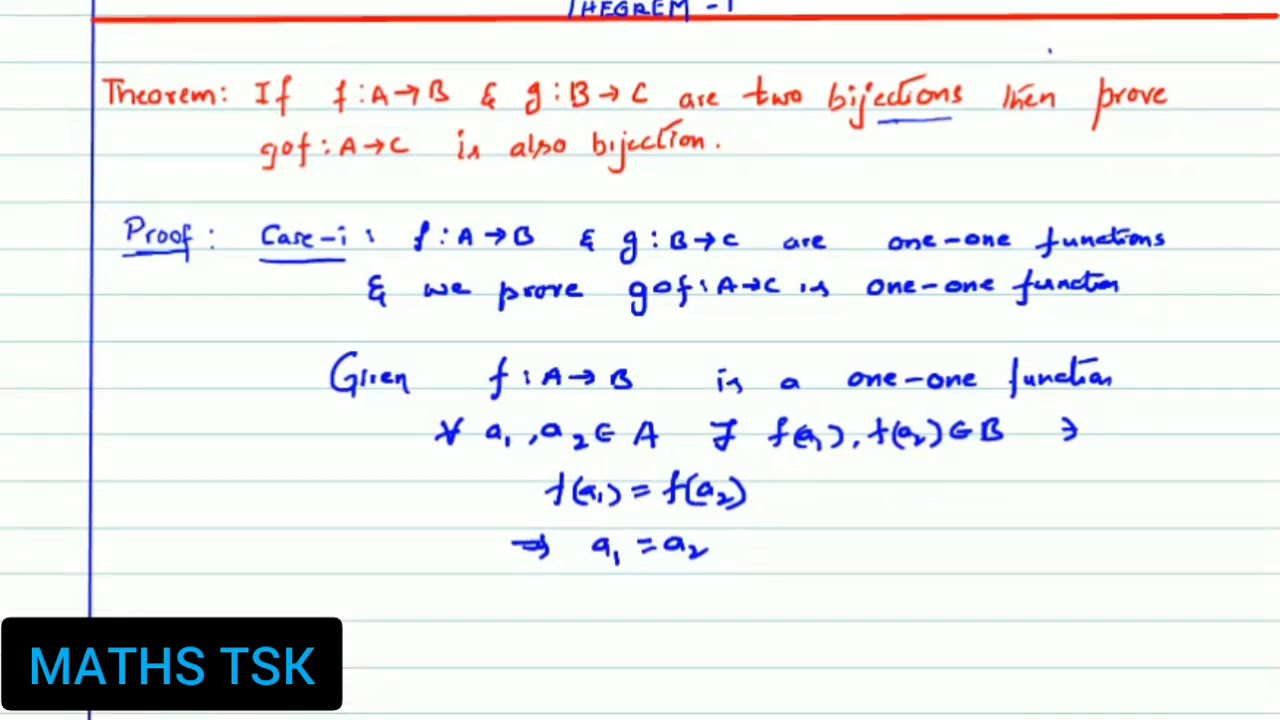 THEOREM - 1
Theorem: If f : A → B & g : B → C are two bijections then prove
gof : A → C is also bijection.
Proof : Case-i : f : A → B & g : B → C are one-one functions
& we prove gof : A → C is one-one function
Given f : A → B is a one-one function
∀ a₁, a₂ ∈ A ∃ f(a₁), f(a₂) ∈ B ∋
f(a₁) = f(a₂)
⇒ a₁ = a₂
MATHS TSK